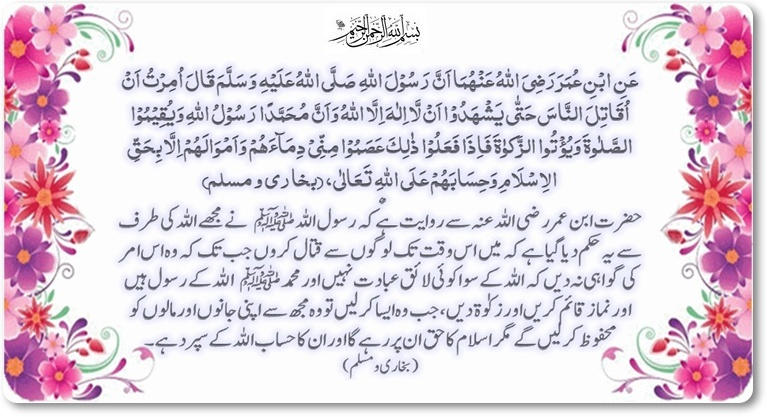 بسم الله الرحمن الرحيم
عَنِ ابْنِ عُمَرَ رَضِیَ اللهُ عَنْهُمَا اَنَّ رَسُوْلَ اللهِ صَلَّی اللهُ عَلَیْهِ وَسَلَّمَ قَالَ اُمِرْتُ اَنْ
اُقَاتِلَ النَّاسَ حَتّٰی یَشْهَدُوْا اَنْ لَّا اِلٰهَ اِلَّا اللهُ وَاَنَّ مُحَمَّدًا رَسُوْلُ اللهِ وَیُقِیْمُوْا
الصَّلٰوةَ وَیُؤْتُوا الزَّکٰوةَ فَاِذَا فَعَلُوْا ذٰلِكَ عَصَمُوْا مِنِّیْ دِمَآءَهُمْ وَاَمْوَالَهُمْ اِلَّا بِحَقِّ
الْاِسْلَامِ وَحِسَابُهُمْ عَلَی اللهِ تَعَالٰی، (بخاری و مسلم)
حضرت ابن عمر رضی اللہ عنہ سے روایت ہے کہ رسول اللہ ﷺ نے مجھے اللہ کی طرف
سے یہ حکم دیا گیا ہے کہ میں اس وقت تک لوگوں سے قتال کروں جب تک کہ وہ اس امر
کی گواہی نہ دیں کہ اللہ کے سوا کوئی لائق عبادت نہیں اور محمد ﷺ اللہ کے رسول ہیں
اور نماز قائم کریں اور زکوٰۃ دیں، جب وہ ایسا کرلیں تو وہ مجھ سے اپنی جانوں اور مالوں کو
محفوظ کرلیں گے مگر اسلام کا حق ان پر رہے گا اور ان کا حساب اللہ کے سپرد ہے۔
(بخاری و مسلم)